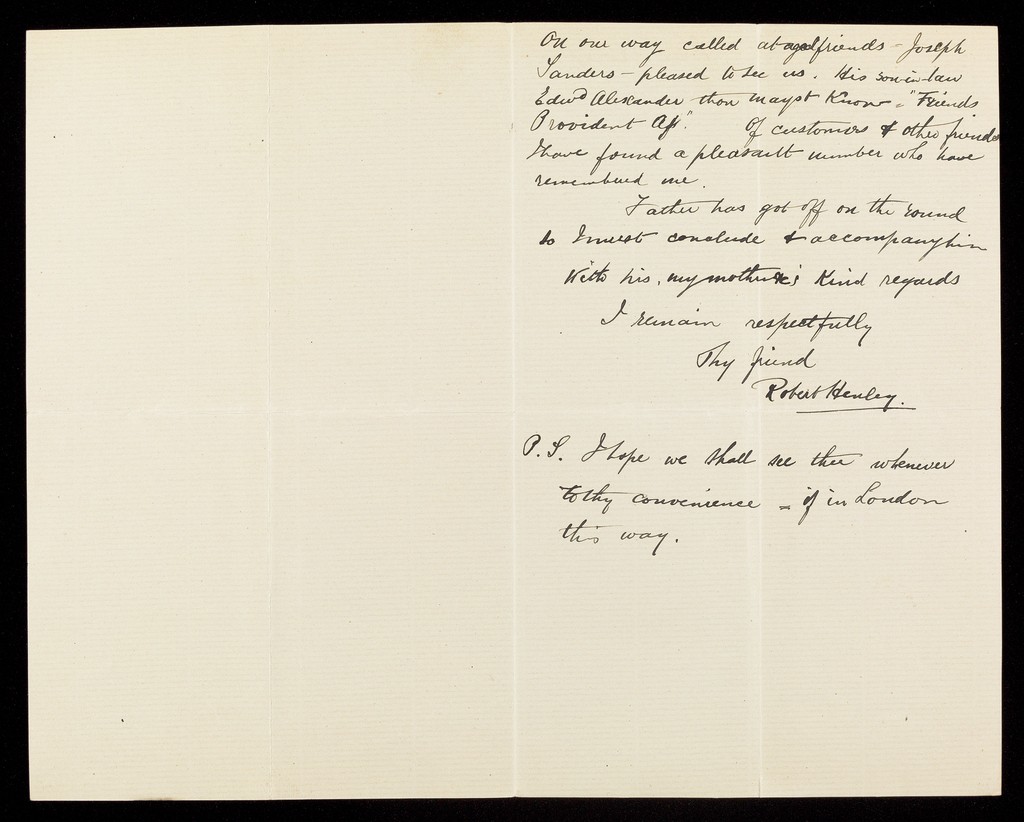 On our way called at aged friends – Joseph
Sanders – pleased to see us. His son-in-law
Edwd Alexander thou mayst know – "Friends
Provident Afs". Of customers & other friends
I have found a pleasant number who have
remembered me.
Father has got off on the round
so I must conclude & accompany him
With his, my mother's kind regards
I remain respectfully
Thy friend
Robert Henley.
P.S. I hope we shall see thee whenever
to thy convenience – if in London
this way.